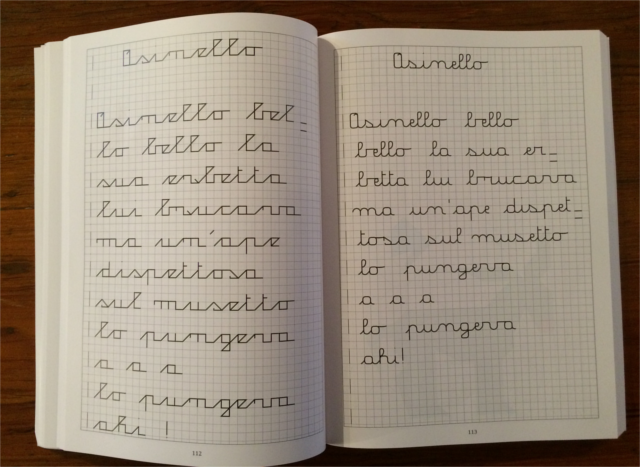 Asinello
Asinello bel_
lo bello la
sua erbetta
lui brucava
ma un'ape
dispettosa
sul musetto
lo pungeva
a a a
lo pungeva
ahi !
112
Asinello
Asinello bello
bello la sua er_
betta lui brucava
ma un'ape dispet_
tosa sul musetto
lo pungeva
a a a
lo pungeva
ahi!
113